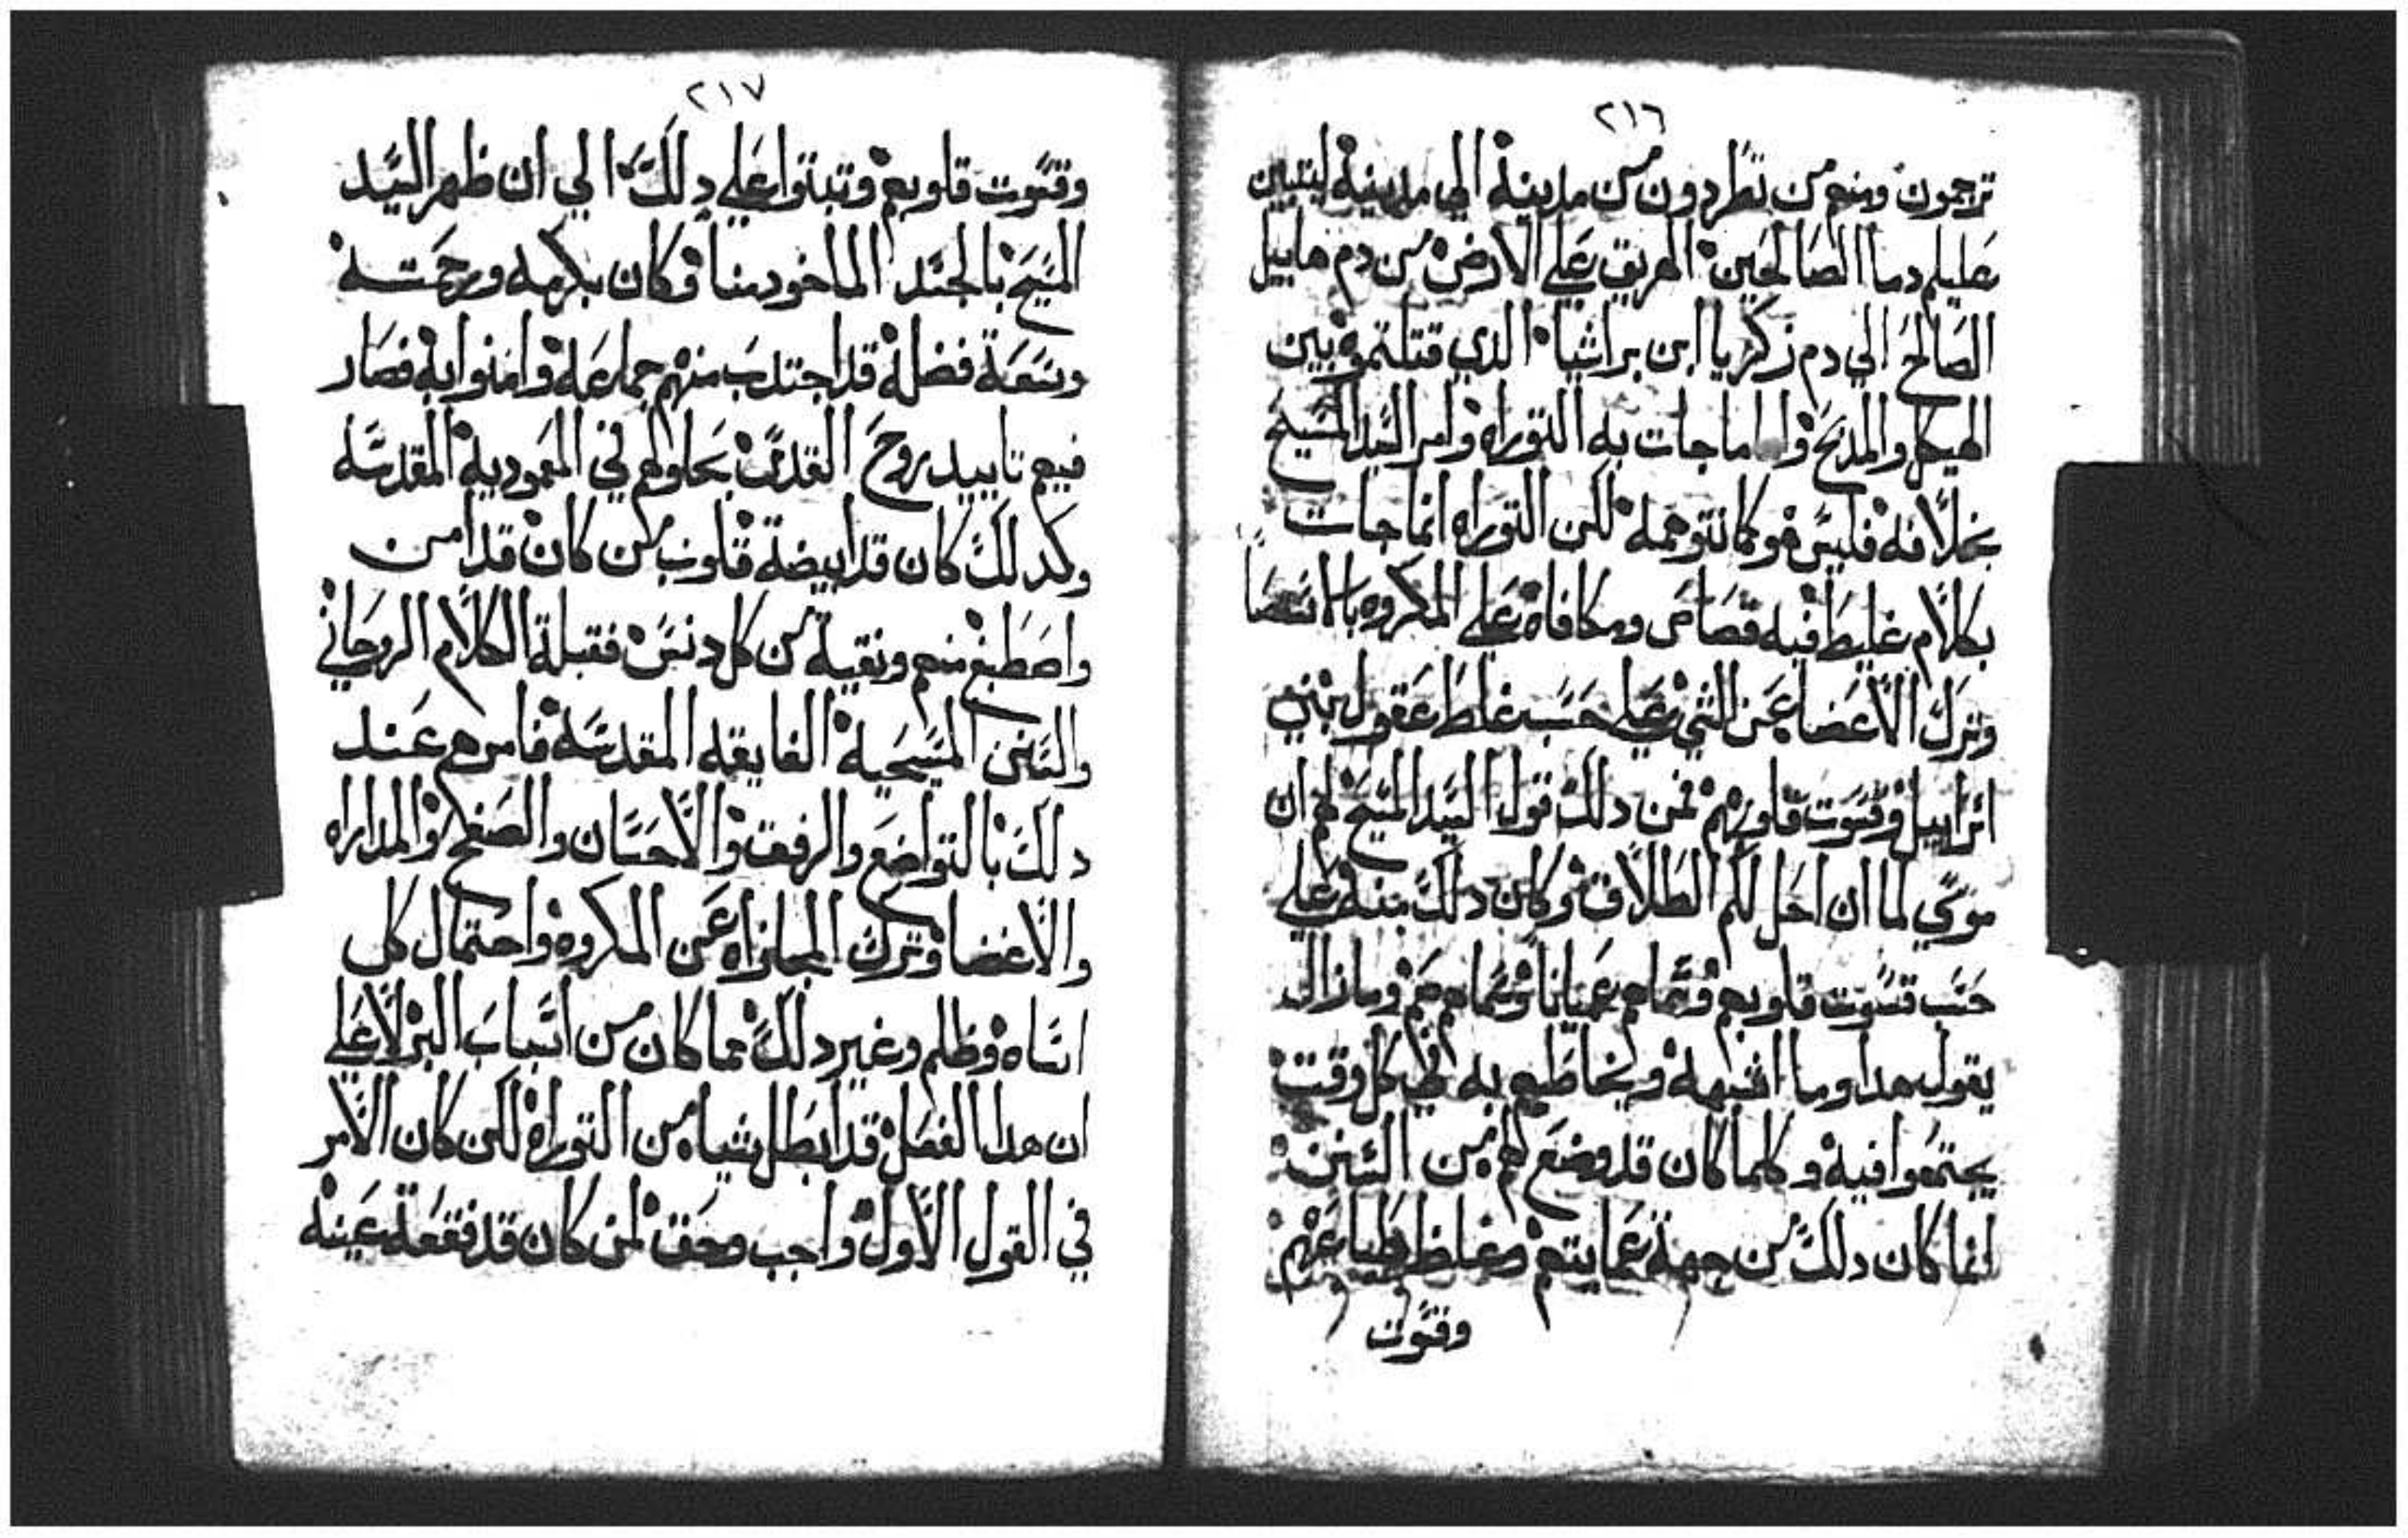 ٢١٦
ترجمون ومنهم من تطردون من مدينة الي مدينة ليتبين
عليكم دما الصالحين المهريق علي الارض من دم هابيل
الصالح الي دم زكريا ابن براشيا الدي قتلتموه بين
الهيكل والمدبح واما ماجات به التوراه وامر السيد المسيح
بخلافه فليس هو كما نتوهمه لكن التوراه انما جات
بكلام غليط فيه قصاص ومكافاة علي المكروه بالانتصا
وترك الاعضا عن الشي علي حسب غلط عقول بني
اسراييل وقسوت قلوبهم فمن دلك قول السيد المسيح لهم ان
موسي لما ان احل لكم الطلاق وكان دلك منه علي
حسب قسوت قلوبهم وسماهم عميانا وسماهم صم ومازال
يقول هدا وما اشبهه ويخاطبهم به في كل وقت
يجتمعوا فيه وكلما كان قد وضع لهم من السنن
انما كان دلك من جهة عمايتهم وغلظ طباعهم
وقسوت
٢١٧
وقسوت قلوبهم وتبتوا علي دلك الي ان ظهر السيد
المسيح بالجسد الماخود منا فكان بكرمه ورحمته
وسعة فضله قد اجتدب منهم جماعة وامنوا به فصار
فيهم تاييد روح القدس بحلوله في المعمودية المقدسه
وكدلك كان قد ابيضة قلوب من كان قد امن
واصطبغ منهم ونقية من كل دنس فقبلة الكلام الروحاني
والسنن المسيحية الفايقه المقدسة فامرهم عند
دلك بالتواضع والرفق والاحسان والصفح والمداراه
والاغضا وترك المجازاه عن المكروه واحتمال كل
اساه وظلم وغير دلك مما كان من اسباب البر لا علي
ان هدا الفصل قد ابطل شياء من التوراه لكن كان الامر
في القول الاول واجب وحق لمن كان قد فقعة عينه